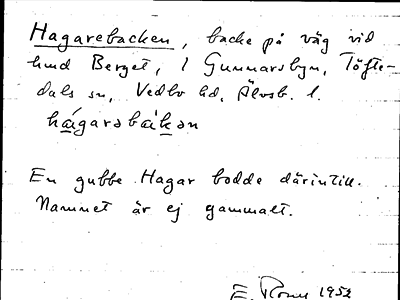 Hagarebacken, backe på väg vid
hmd Berget, i Gunnarsbyn, Töfte-
dals sn, Vedbo hd, Älvsb. l.
hágarəbák̀ən
En gubbe Hagar bodde därintill.
Namnet är ej gammalt.
E. 1952